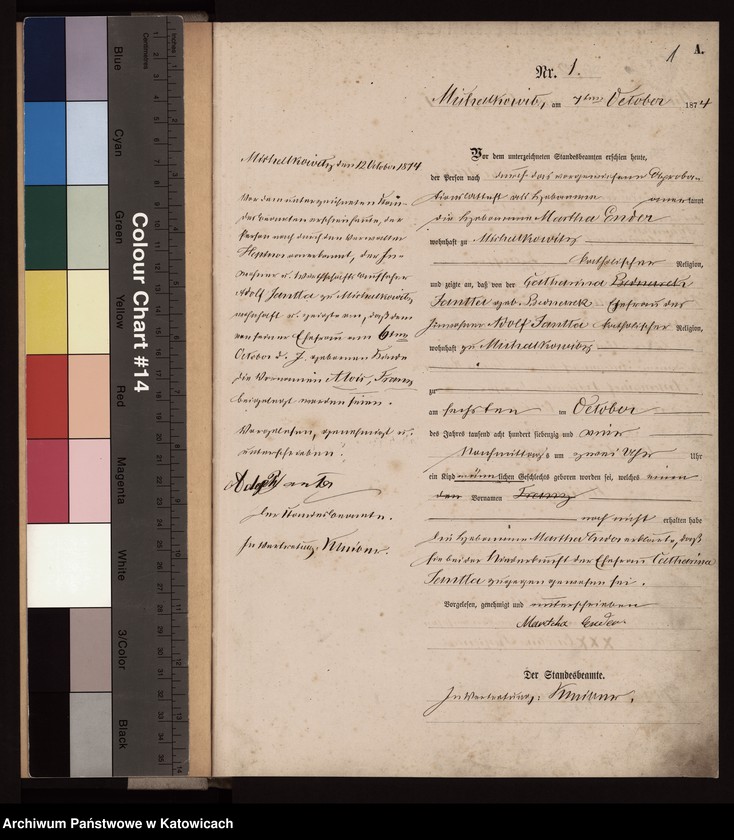 A.
1
Nr. 1.
Michalkowitz, am 7ten October 1874
Vor dem unterzeichneten Standesbeamten erschien heute,
der Person nach durch das vorgewiesene Approba-
tionsattest als Hebamme anerkannt
die Hebamme Martha Ender
wohnhaft zu Michalkowitz
katholischer Religion,
und zeigte an, daß von der Catharina Bednarek
Jantta geb. Bednarek Ehefrau des
Inwohner Adolf Jantta katholischer Religion,
wohnhaft zu Michalkowitz
zu
am sechsten ten October
des Jahres tausend acht hundert siebenzig und vier
Nachmittags um zwei Uhr Uhr
ein Kind männlichen Geschlechts geboren worden sei, welches einen
den Vornamen Franz
noch nicht erhalten habe
die Hebamme Martha Ender erklärte, daß
sie bei der Niederkunft der Ehefrau Catharina
Jantta zugegen gewesen sei.
Vorgelesen, genehmigt und unterschrieben
Martha Ender.
Der Standesbeamte.
In Vertretung:
Michalkowitz, den 12 October 1874
Vor dem unterzeichneten Stan-
desbeamten erschien heute, der
Person nach durch den Verwalter
anerkannt, der In-
wohner u.
Adolf Jantta zu Michalkowitz
wohnhaft u. zeigte an, daß dem
von seiner Ehefrau am 6ten
October d. J. geborenen Kinde
die Vornamen Alois, Franz
beigelegt worden seien.
Vorgelesen, genehmigt u.
unterschrieben.
Adolph
Der Standesbeamte.
In Vertretung:
Colour Chart #14
Blue
Cyan
Green
Yellow
Red
Magenta
White
3/Color
Black
Centimetres
Inches
Archiwum Państwowe w Katowicach